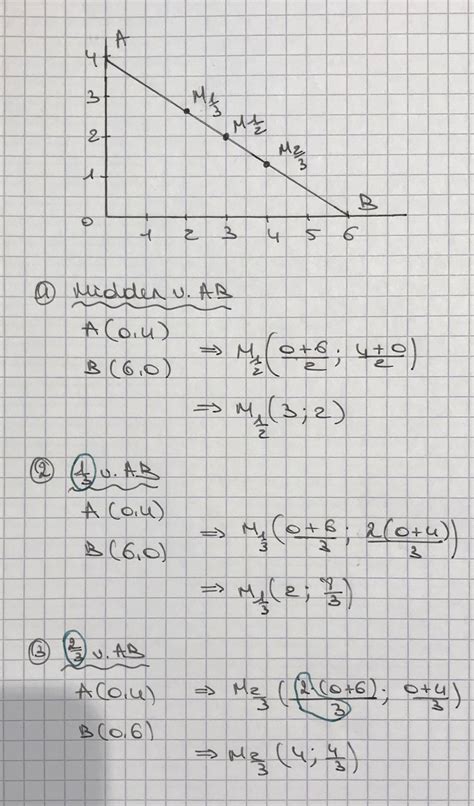 A
4
3
2
1
0
M 1/3
M 1/2
M 2/3
B
1 2 3 4 5 6
① Midden v. AB
A(0,4)
B(6,0) ⇒ M 1/2 ( (0+6)/2 ; (4+0)/2 )
⇒ M 1/2 (3;2)
② 1/3 v. AB
A(0,4)
B(6,0) ⇒ M 1/3 ( (0+6)/3 ; 2(0+4)/3 )
⇒ M 1/3 (2; 8/3)
③ 2/3 v. AB
A(0,4) ⇒ M 2/3 ( 2·(0+6)/3 ; (0+4)/3 )
B(0,6)
⇒ M 2/3 (4; 4/3)